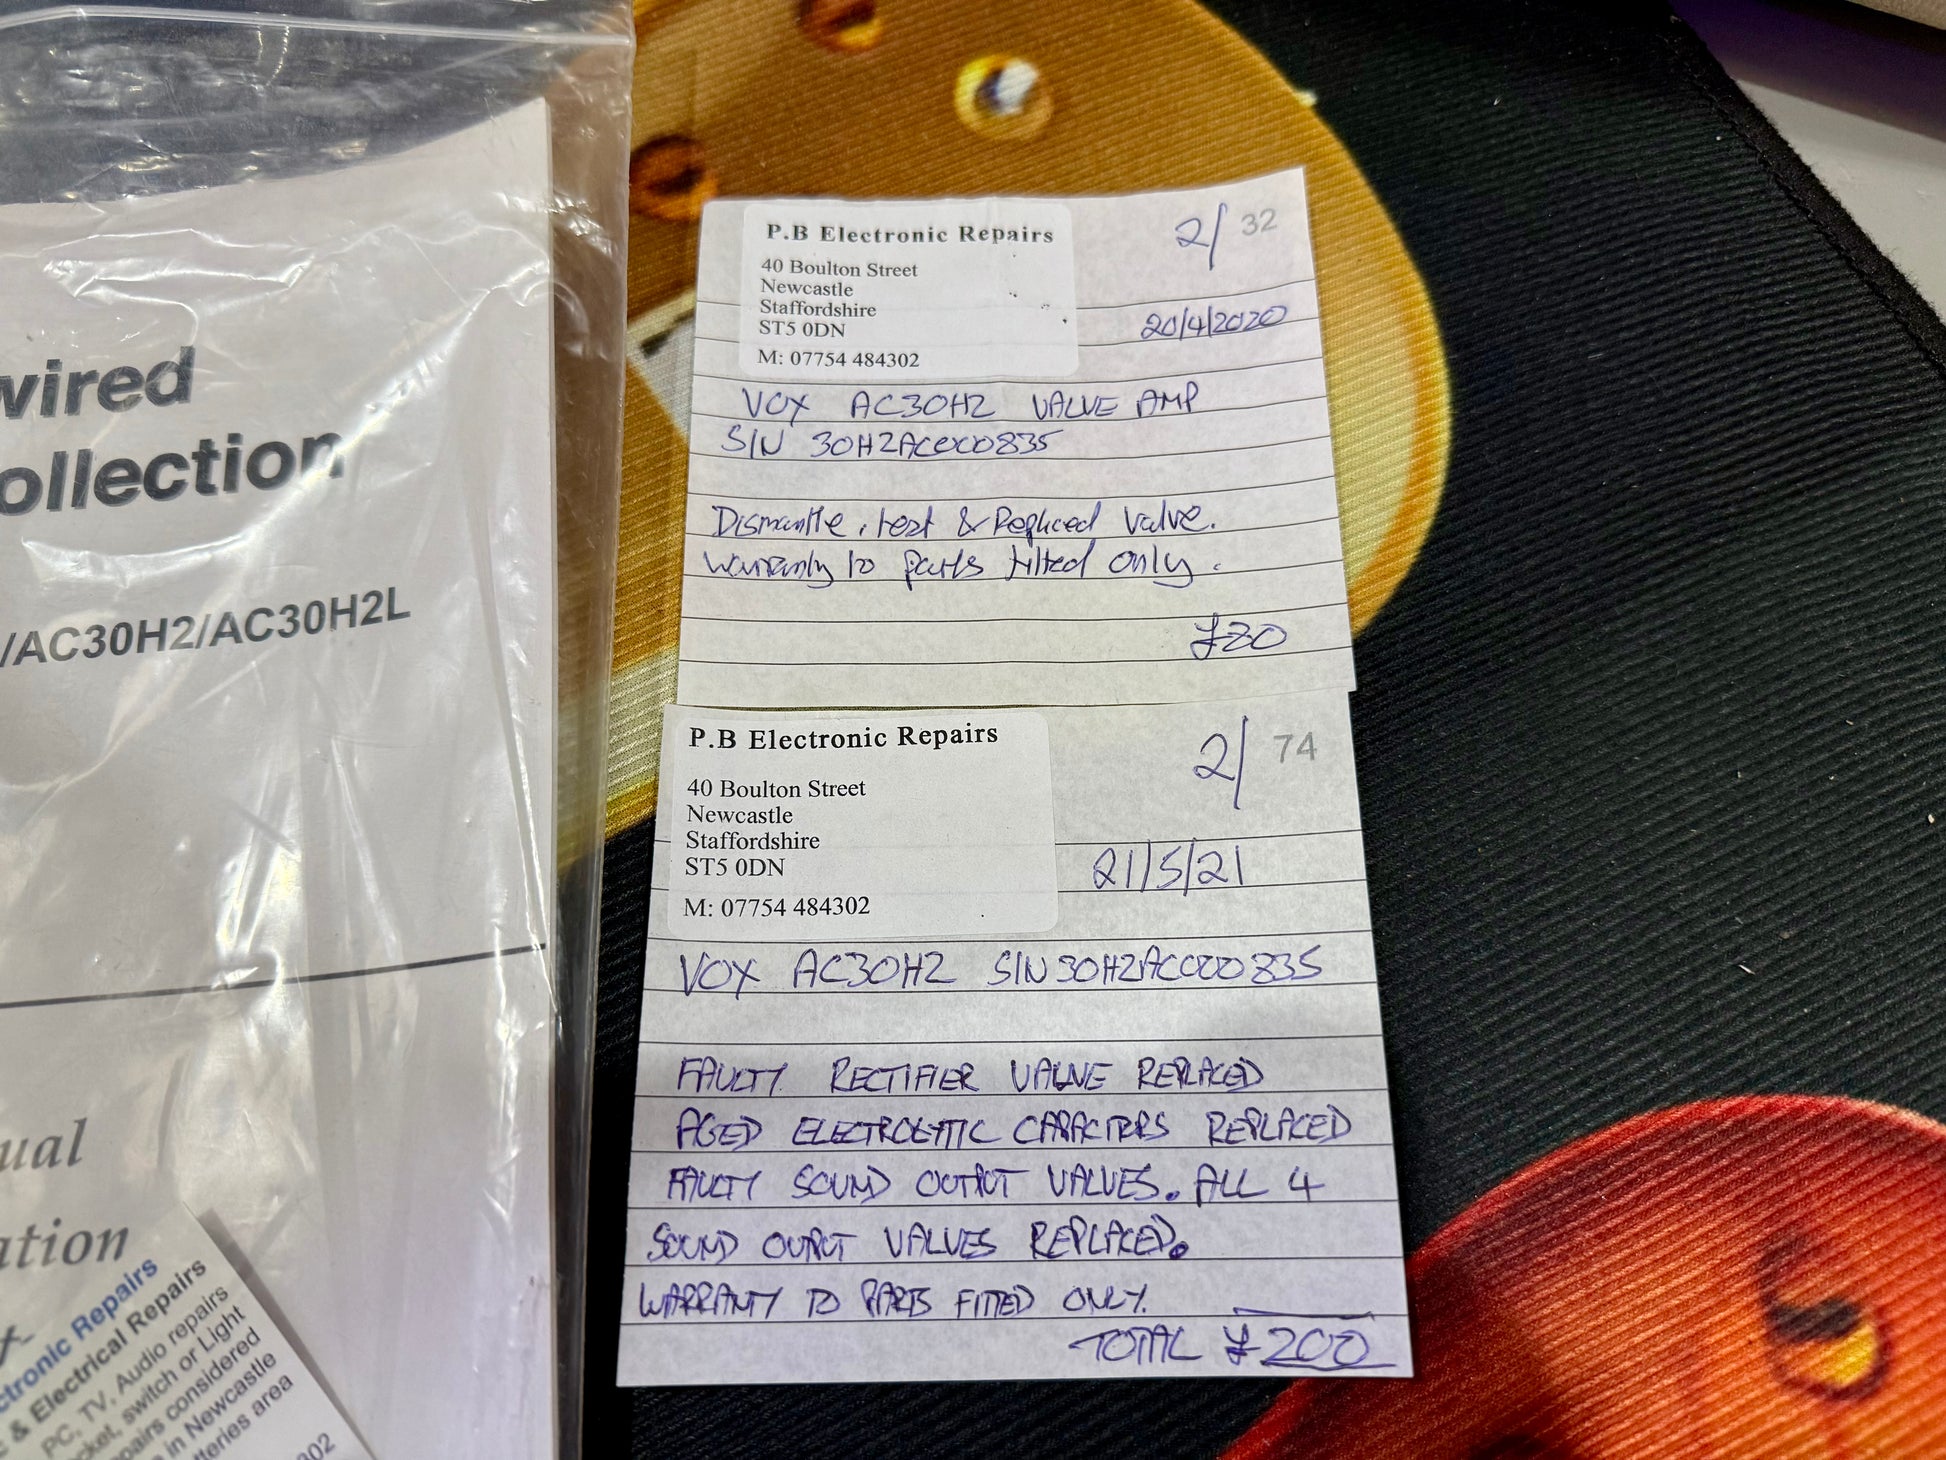 wired
ollection
/AC30H2/AC30H2L
ual
ation
ctronic Repairs
& Electrical Repairs
PC, TV, Audio repairs
cket, switch or Light
epairs considered
in Newcastle
tteries area
302
P.B Electronic Repairs
40 Boulton Street
Newcastle
Staffordshire
ST5 0DN
M: 07754 484302
2/ 32
20/4/2020
VOX AC30H2 VALVE AMP
S/N 30H2AC000835
Dismantle, test & Replaced valve.
warranty to parts fitted only.
P.B Electronic Repairs
40 Boulton Street
Newcastle
Staffordshire
ST5 0DN
M: 07754 484302
2/ 74
21/5/21
VOX AC30H2 S/N 30H2AC000835
FAULTY RECTIFIER VALVE REPLACED
AGED ELECTROLYTIC CAPACITERS REPLACED
FAULTY SOUND OUTPUT VALVES. ALL 4
SOUND OUTPUT VALVES REPLACED.
WARRANTY TO PARTS FITTED ONLY.
TOTAL £200